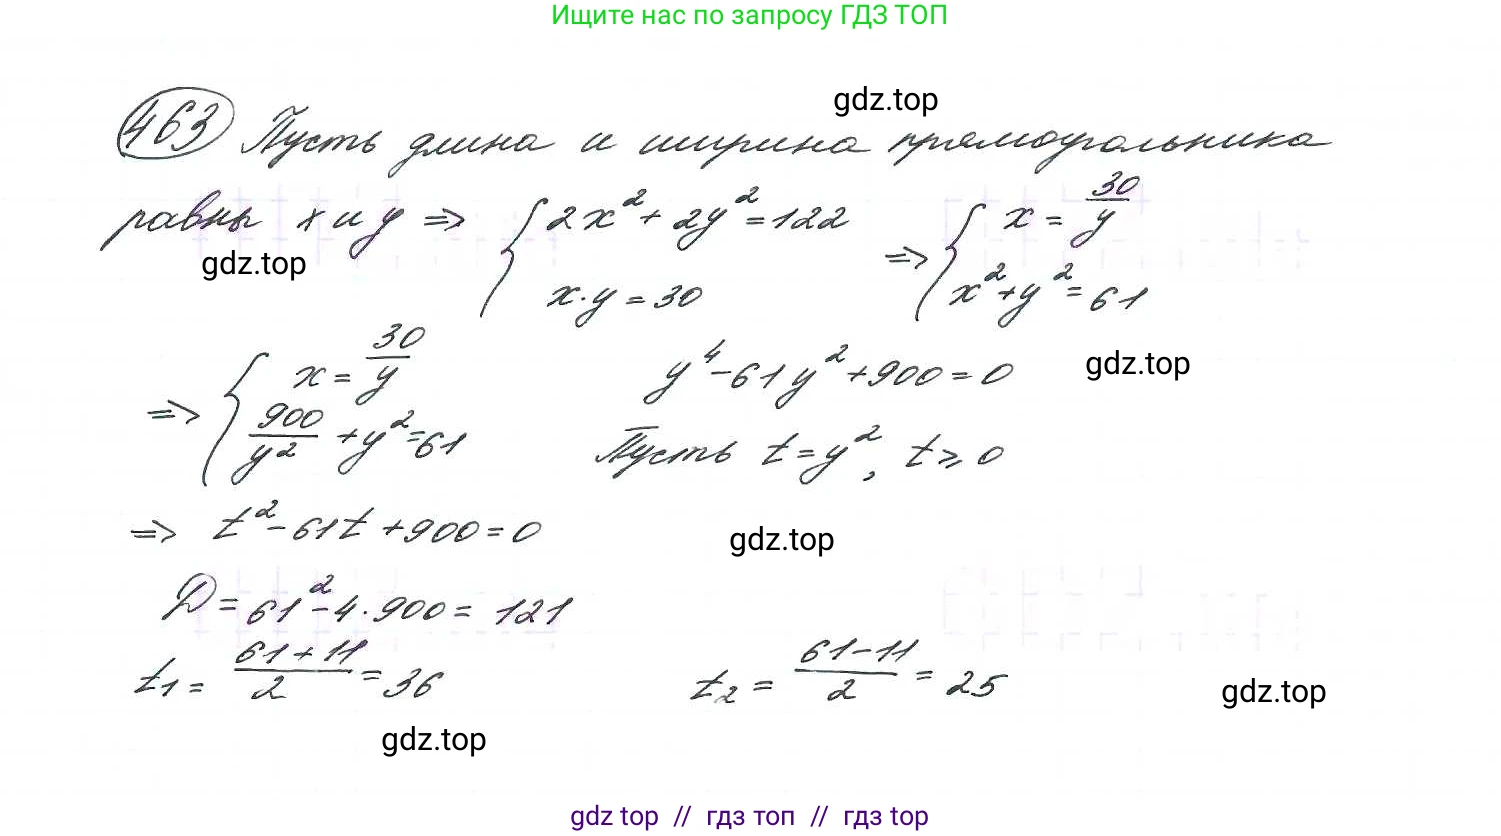 Ищите нас по запросу ГДЗ ТОП
gdz.top
463 Пусть длина и ширина прямоугольника
равны x и y ⇒ { 2x² + 2y² = 122 ⇒ { x = 30/y
x·y = 30 x² + y² = 61
gdz.top
⇒ { x = 30/y y⁴ - 61y² + 900 = 0
gdz.top
900/y² + y² = 61 Пусть t = y², t ⩾ 0
⇒ t² - 61t + 900 = 0
gdz.top
D = 61² - 4·900 = 121
t₁ = (61 + 11)/2 = 36 t₂ = (61 - 11)/2 = 25
gdz.top
gdz.top
gdz top // гдз топ // gdz top